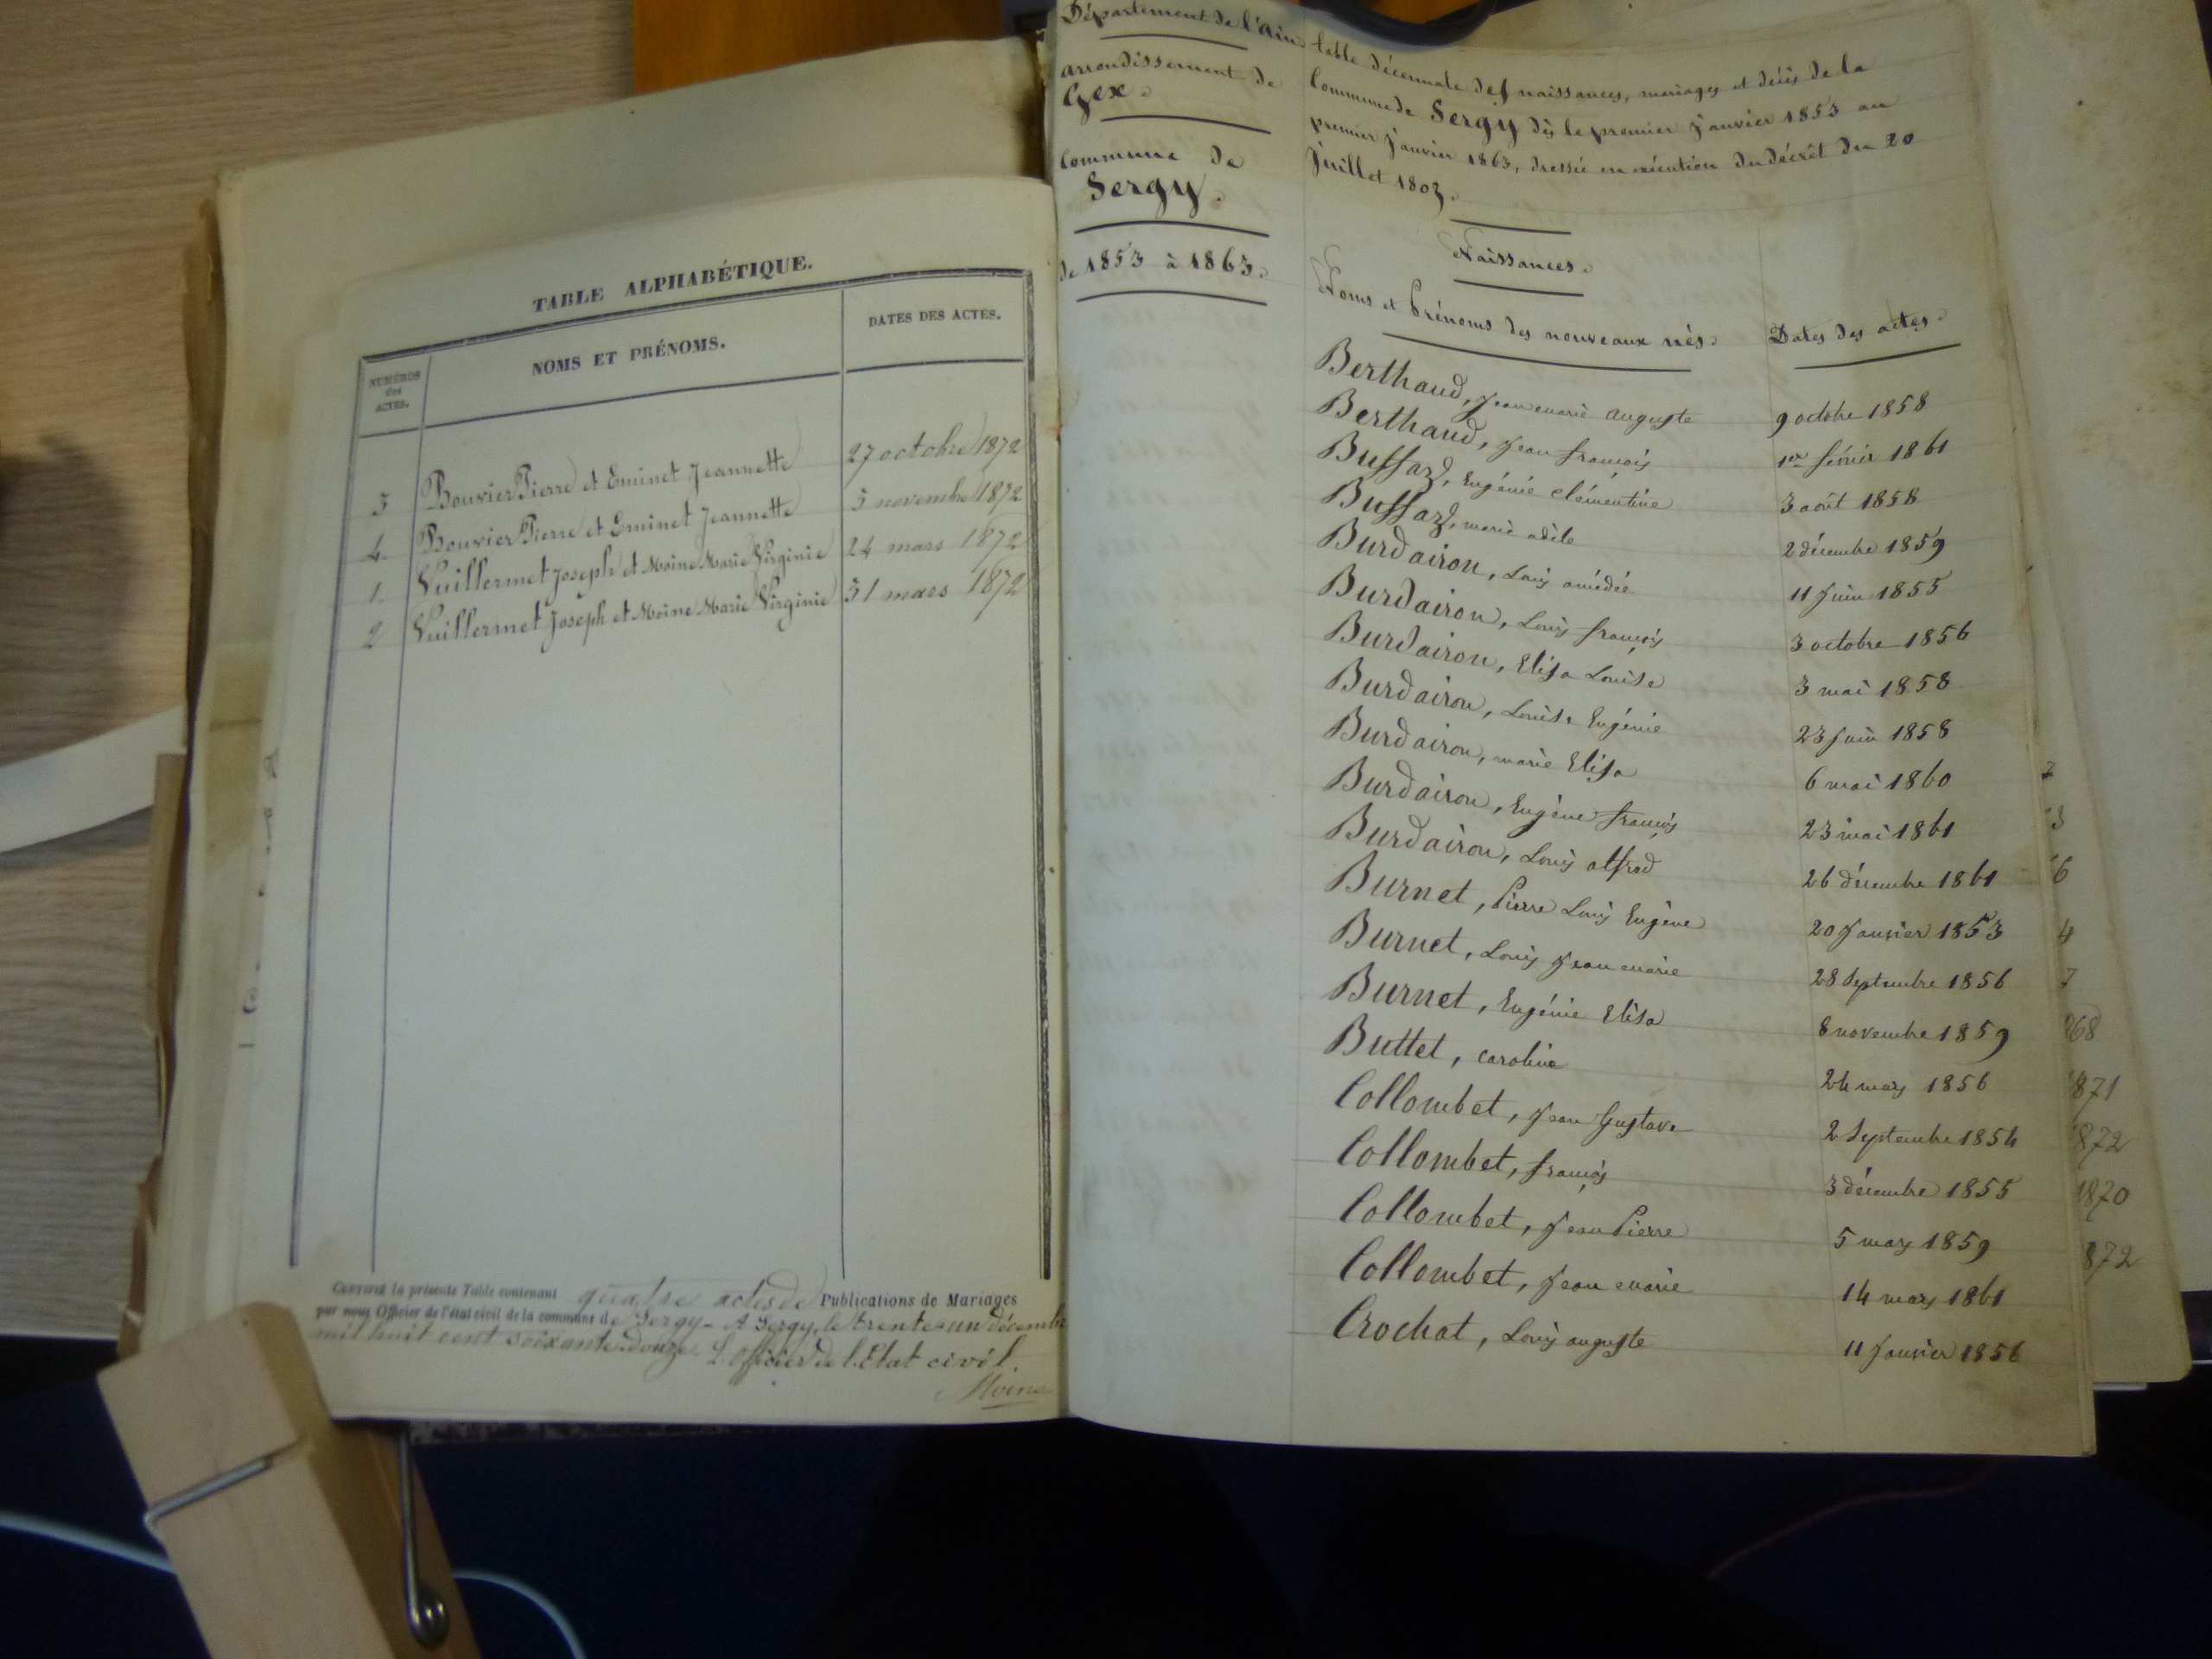 TABLE ALPHABÉTIQUE.
NUMÉROS des ACTES.
NOMS ET PRÉNOMS.
DATES DES ACTES.
3 Bouvier Pierre et Eminet Jeannette 27 octobre 1872
4. Bouvier Pierre et Eminet Jeannette 3 novembre 1872
1. Vuillermet Joseph et Moine Marie Virginie 24 mars 1872
2 Vuillermet Joseph et Moine Marie Virginie 31 mars 1872
Certifié la présente Table contenant quatre actes de Publications de Mariages
par nous Officier de l'état civil de la commune de Sergy - A Sergy, le trente un décembre
mil huit cent soixante douze. L'officier de l'Etat civil.
Moine
Département de l'ain
arrondissement de
Gex.
Commune de
Sergy.
de 1853 à 1863.
table décennale des naissances, mariages et décès de la
Commune de Sergy dès le premier janvier 1853 au
premier janvier 1863, dressée en exécution du décrêt du 20
Juillet 1807.
Naissances.
Noms et Prénoms des nouveaux nés. Dates des actes.
Berthaud, Jean marie auguste 9 octobre 1858
Berthaud, Jean françois 1er février 1861
Buffaz, Eugénie clémentine 3 août 1858
Buffaz, marie adèle 2 décembre 1859
Burdairon, Louis amédée 11 Juin 1855
Burdairon, Louis françois 3 octobre 1856
Burdairon, Elisa Louise 3 mai 1858
Burdairon, Louise Eugénie 23 juin 1858
Burdairon, marie Elisa 6 mai 1860
Burdairon, Eugène françois 23 mai 1861
Burdairon, Louis alfred 26 décembre 1861
Burnet, Pierre Louis Eugène 20 Janvier 1853
Burnet, Louis Jean marie 28 Septembre 1856
Burnet, Eugénie Elisa 8 novembre 1859
Buttet, caroline 24 mars 1856
Collombet, Jean Gustave 2 Septembre 1854
Collombet, françois 3 décembre 1855
Collombet, Jean Pierre 5 mars 1859
Collombet, Jean marie 14 mars 1861
Crochat, Louis auguste 11 Janvier 1856
2
3
6
4
7
868
1871
872
1870
872